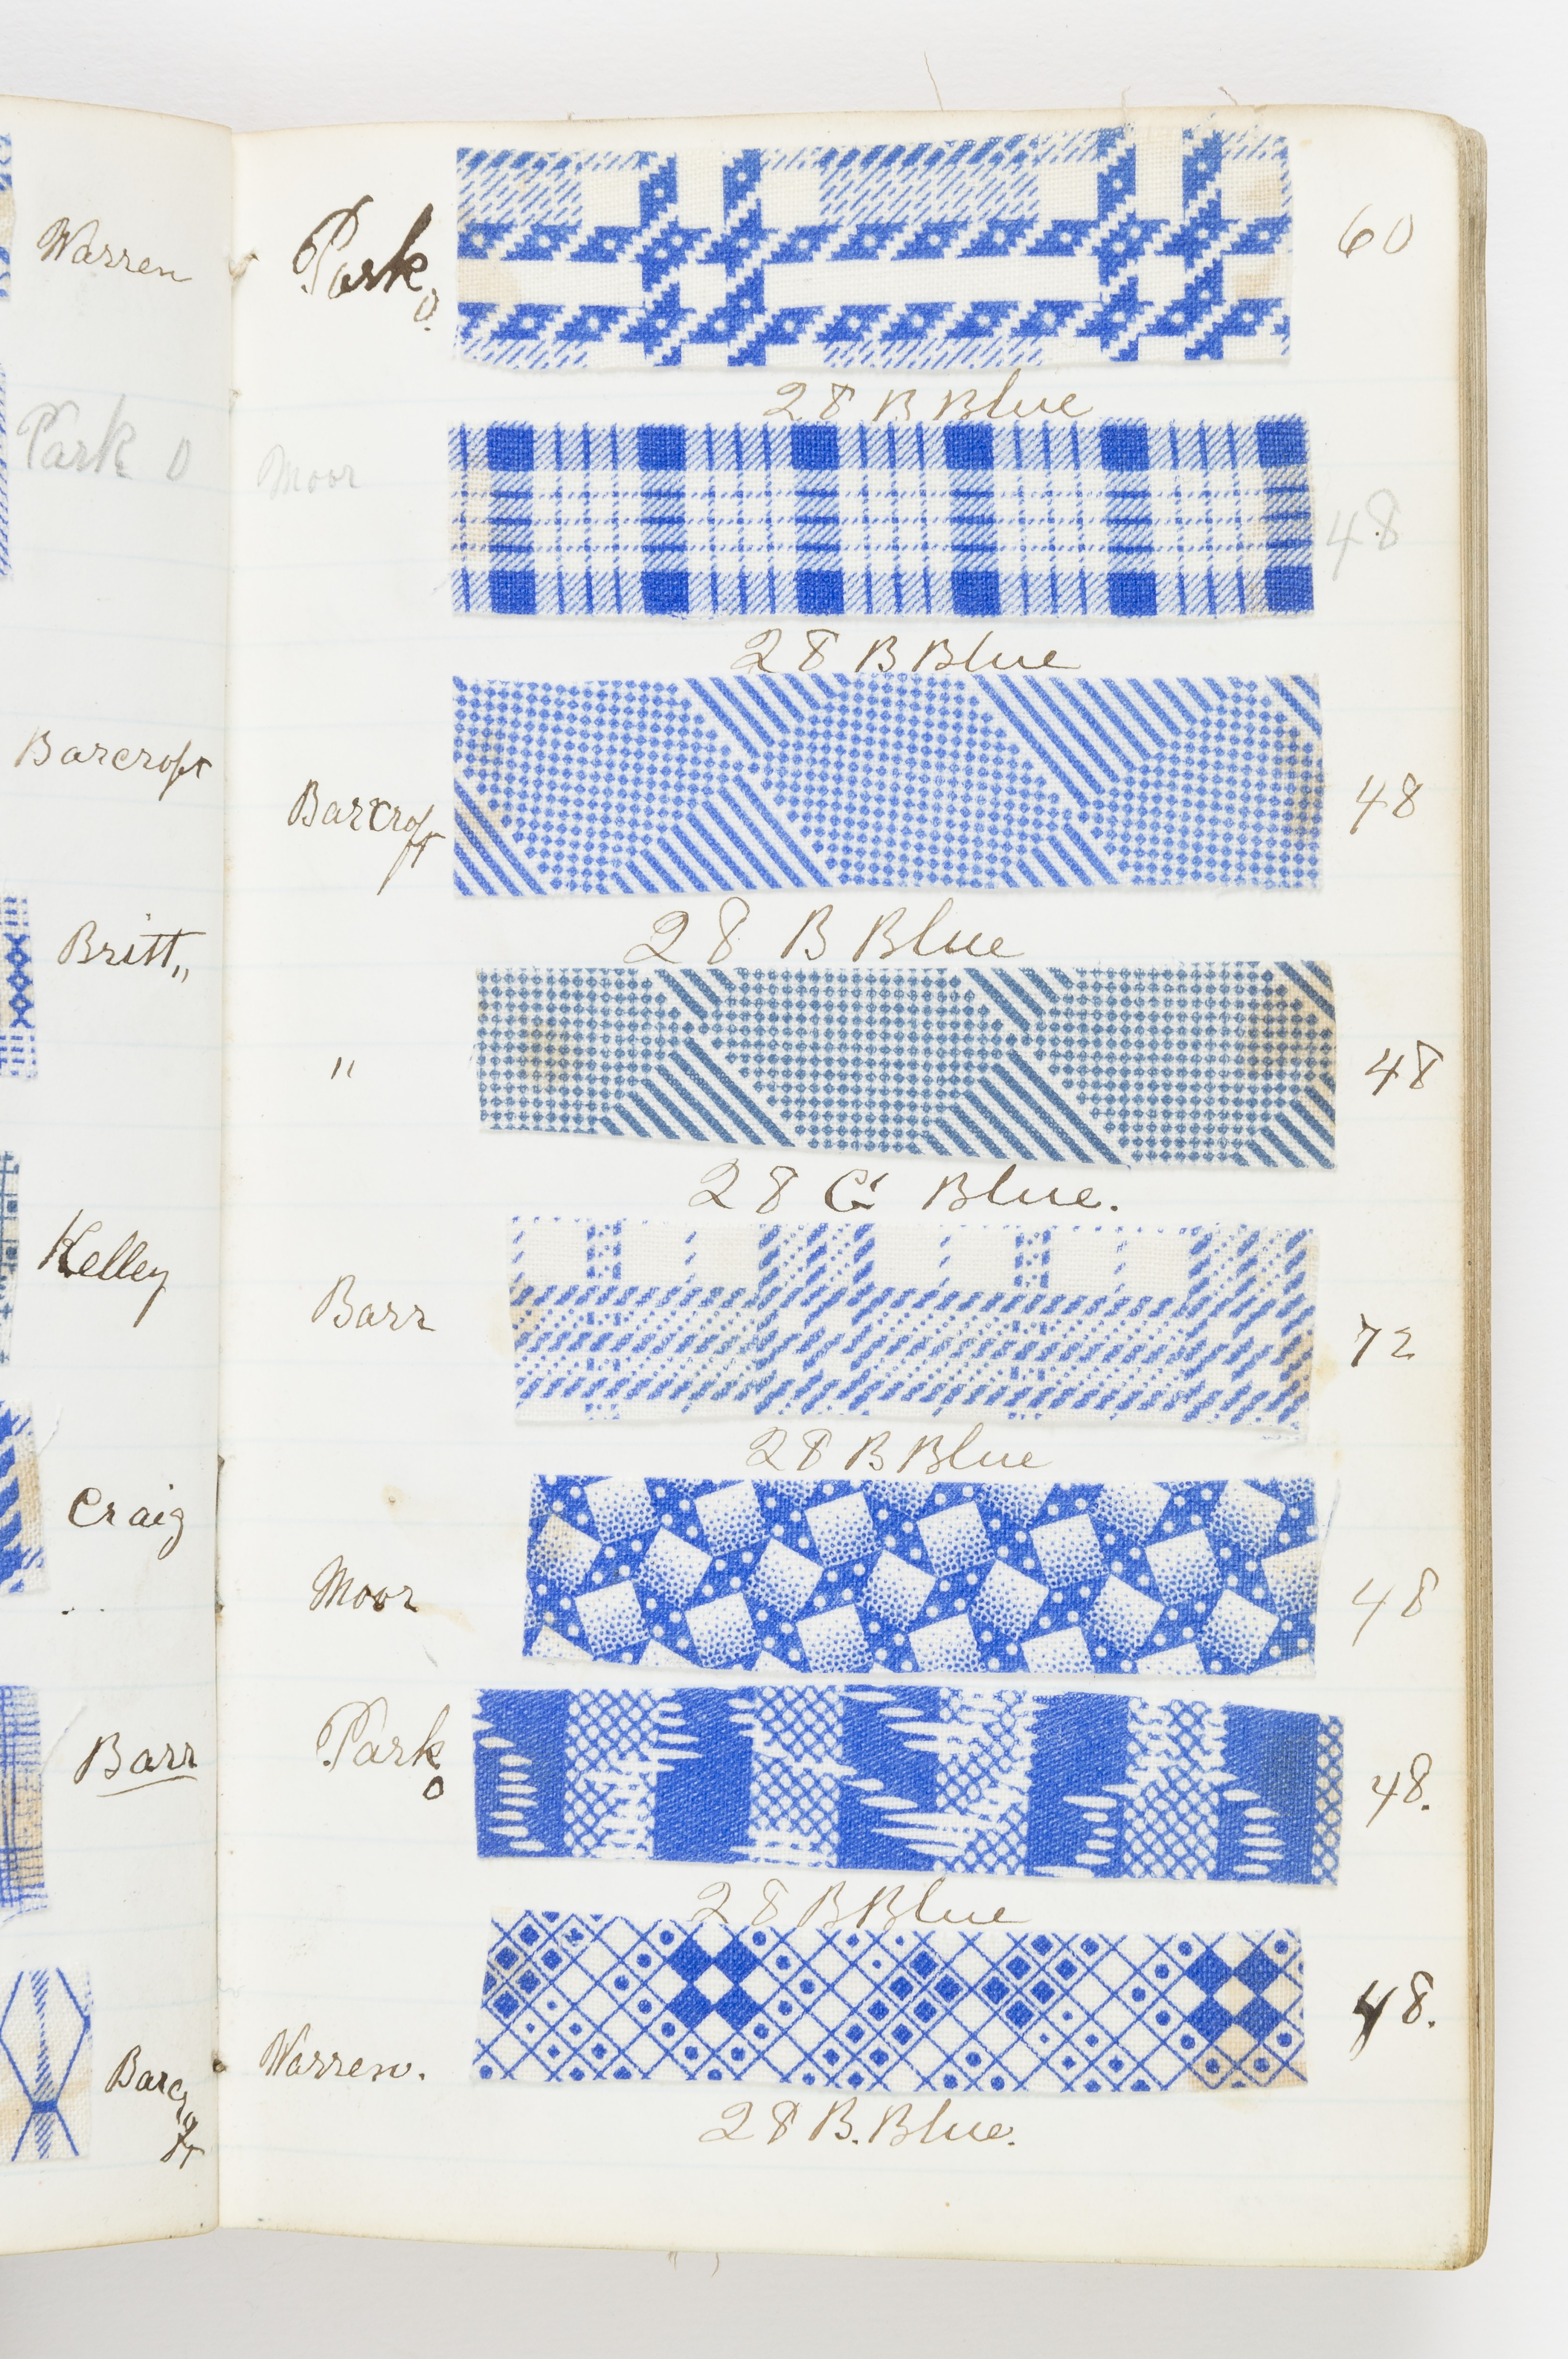 Warren
Park O
Barcroft
Britt,,
Kelley
Craig
Barr
Barcroft
Park O.
60
28 B Blue
Moor
48
28 B Blue
Barcroft
48
28 B Blue
"
48
28 G Blue.
Barr
72
28 B Blue
Moor
48
Park O
48.
28 B Blue
Warren.
48.
28 B. Blue.